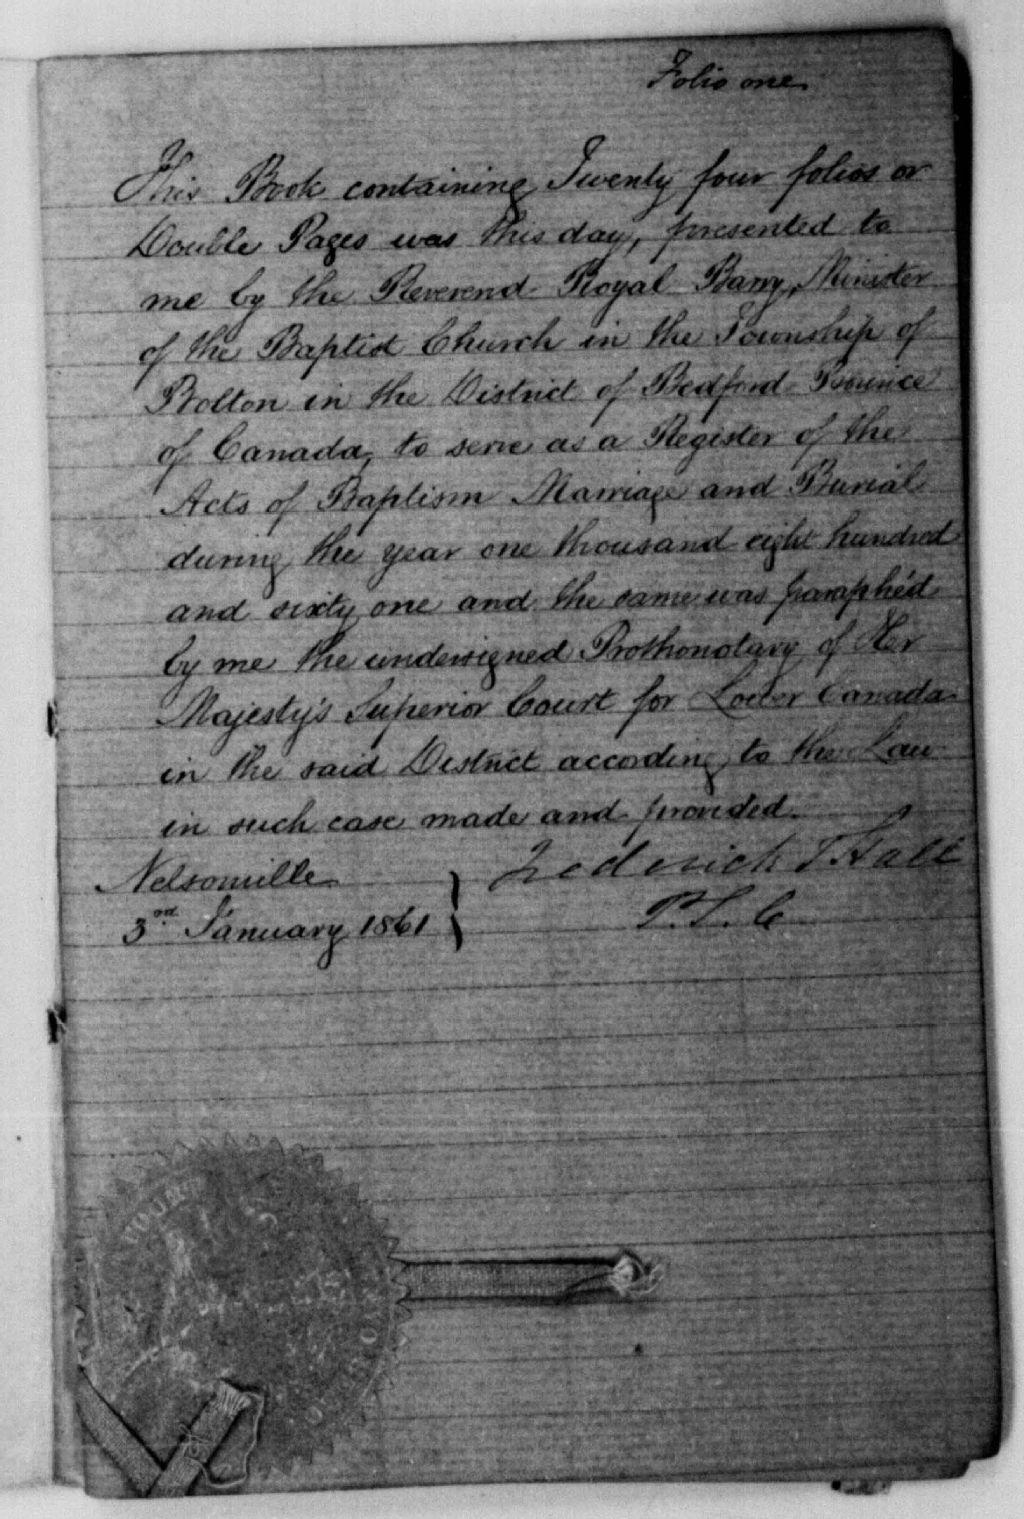 Folio one
This Book containing Twenty four folios or
Double Pages was this day, presented to
me by the Reverend Royal Barry, Minister
of the Baptist Church in the Township of
Bolton in the District of Bedford Province
of Canada, to serve as a Register of the
Acts of Baptism Marriage and Burial
during the year one thousand eight hundred
and sixty one and the same was paraphéd
by me the undersigned Prothonotary of Her
Majesty's Superior Court for Lower Canada
in the said District according to the Law
in such case made and provided.
Nelsonville
Frederick T Hall
3rd January 1861
P.S.C
COURT